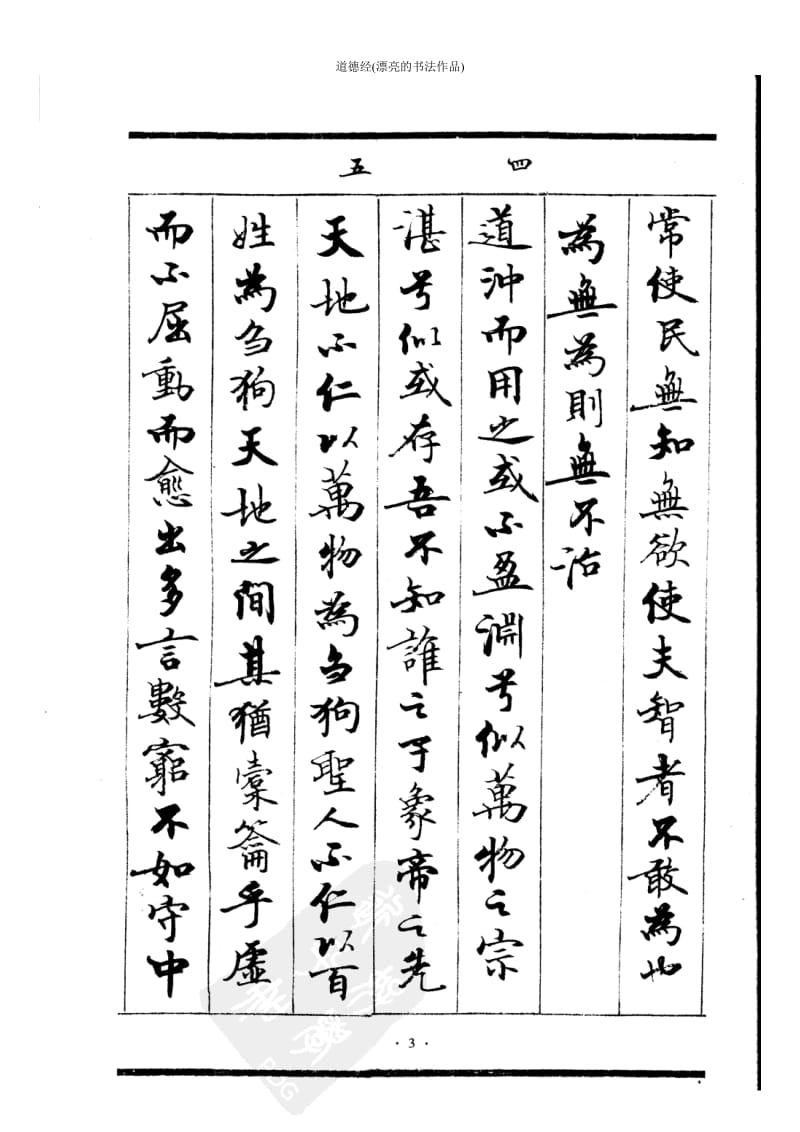 道德经(漂亮的书法作品)
四
五
常使民無知無欲使夫智者不敢為也
為無為則無不治
道沖而用之或不盈淵兮似萬物之宗
湛兮似或存吾不知誰之子象帝之先
天地不仁以萬物為芻狗聖人不仁以百
姓為芻狗天地之間其猶橐籥乎虛
而不屈動而愈出多言數窮不如守中
·3·